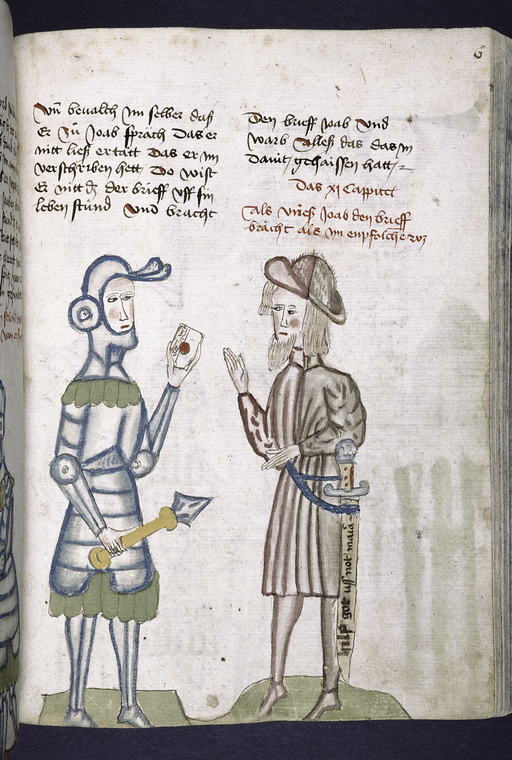 6
Vñ bevalch Im selber das
Er zů Joab spräch Das er
nitt lies ertätt Das er Im
verschriben hett Do wist
Er nitt dz der brieff vff sin
leben stůnd Vnd bracht
Den brieff Joab Vnd
warb Alles das das Im
Dauit gehaissen hatt
Das xj Cappittel
Als Vries Joab den brieff
bracht als Im enpfolche
help got uss not maria